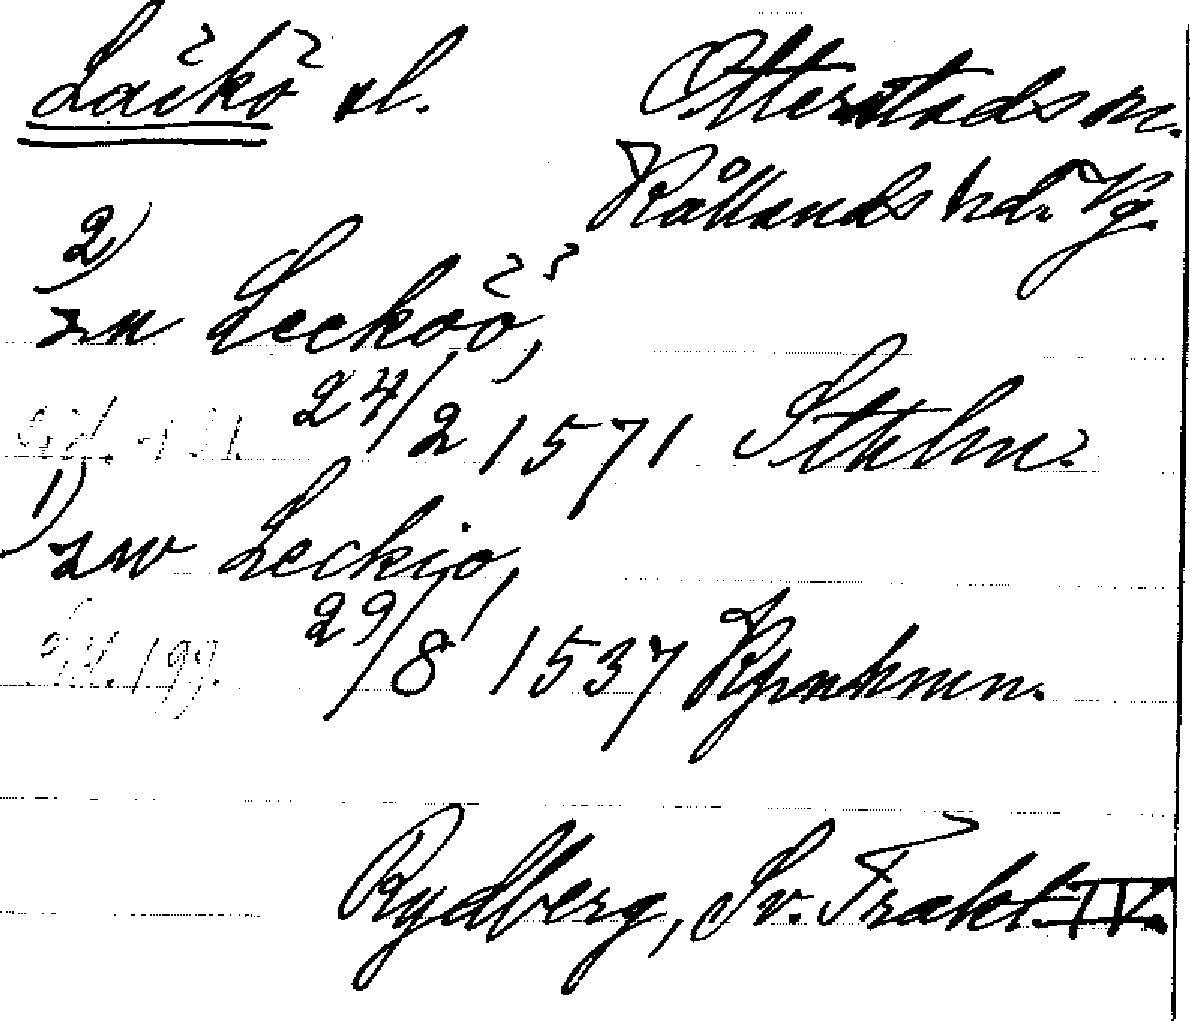 Läckö sl. Otterstads sn.
Kållands hd. Vg.
2)
zu Leckoö,
24/2 1571 Sthlm.
1)
zw Leckio,
29/8 1537 Kpnhmn.
199.
Rydberg, Sv. Trakt. IV.